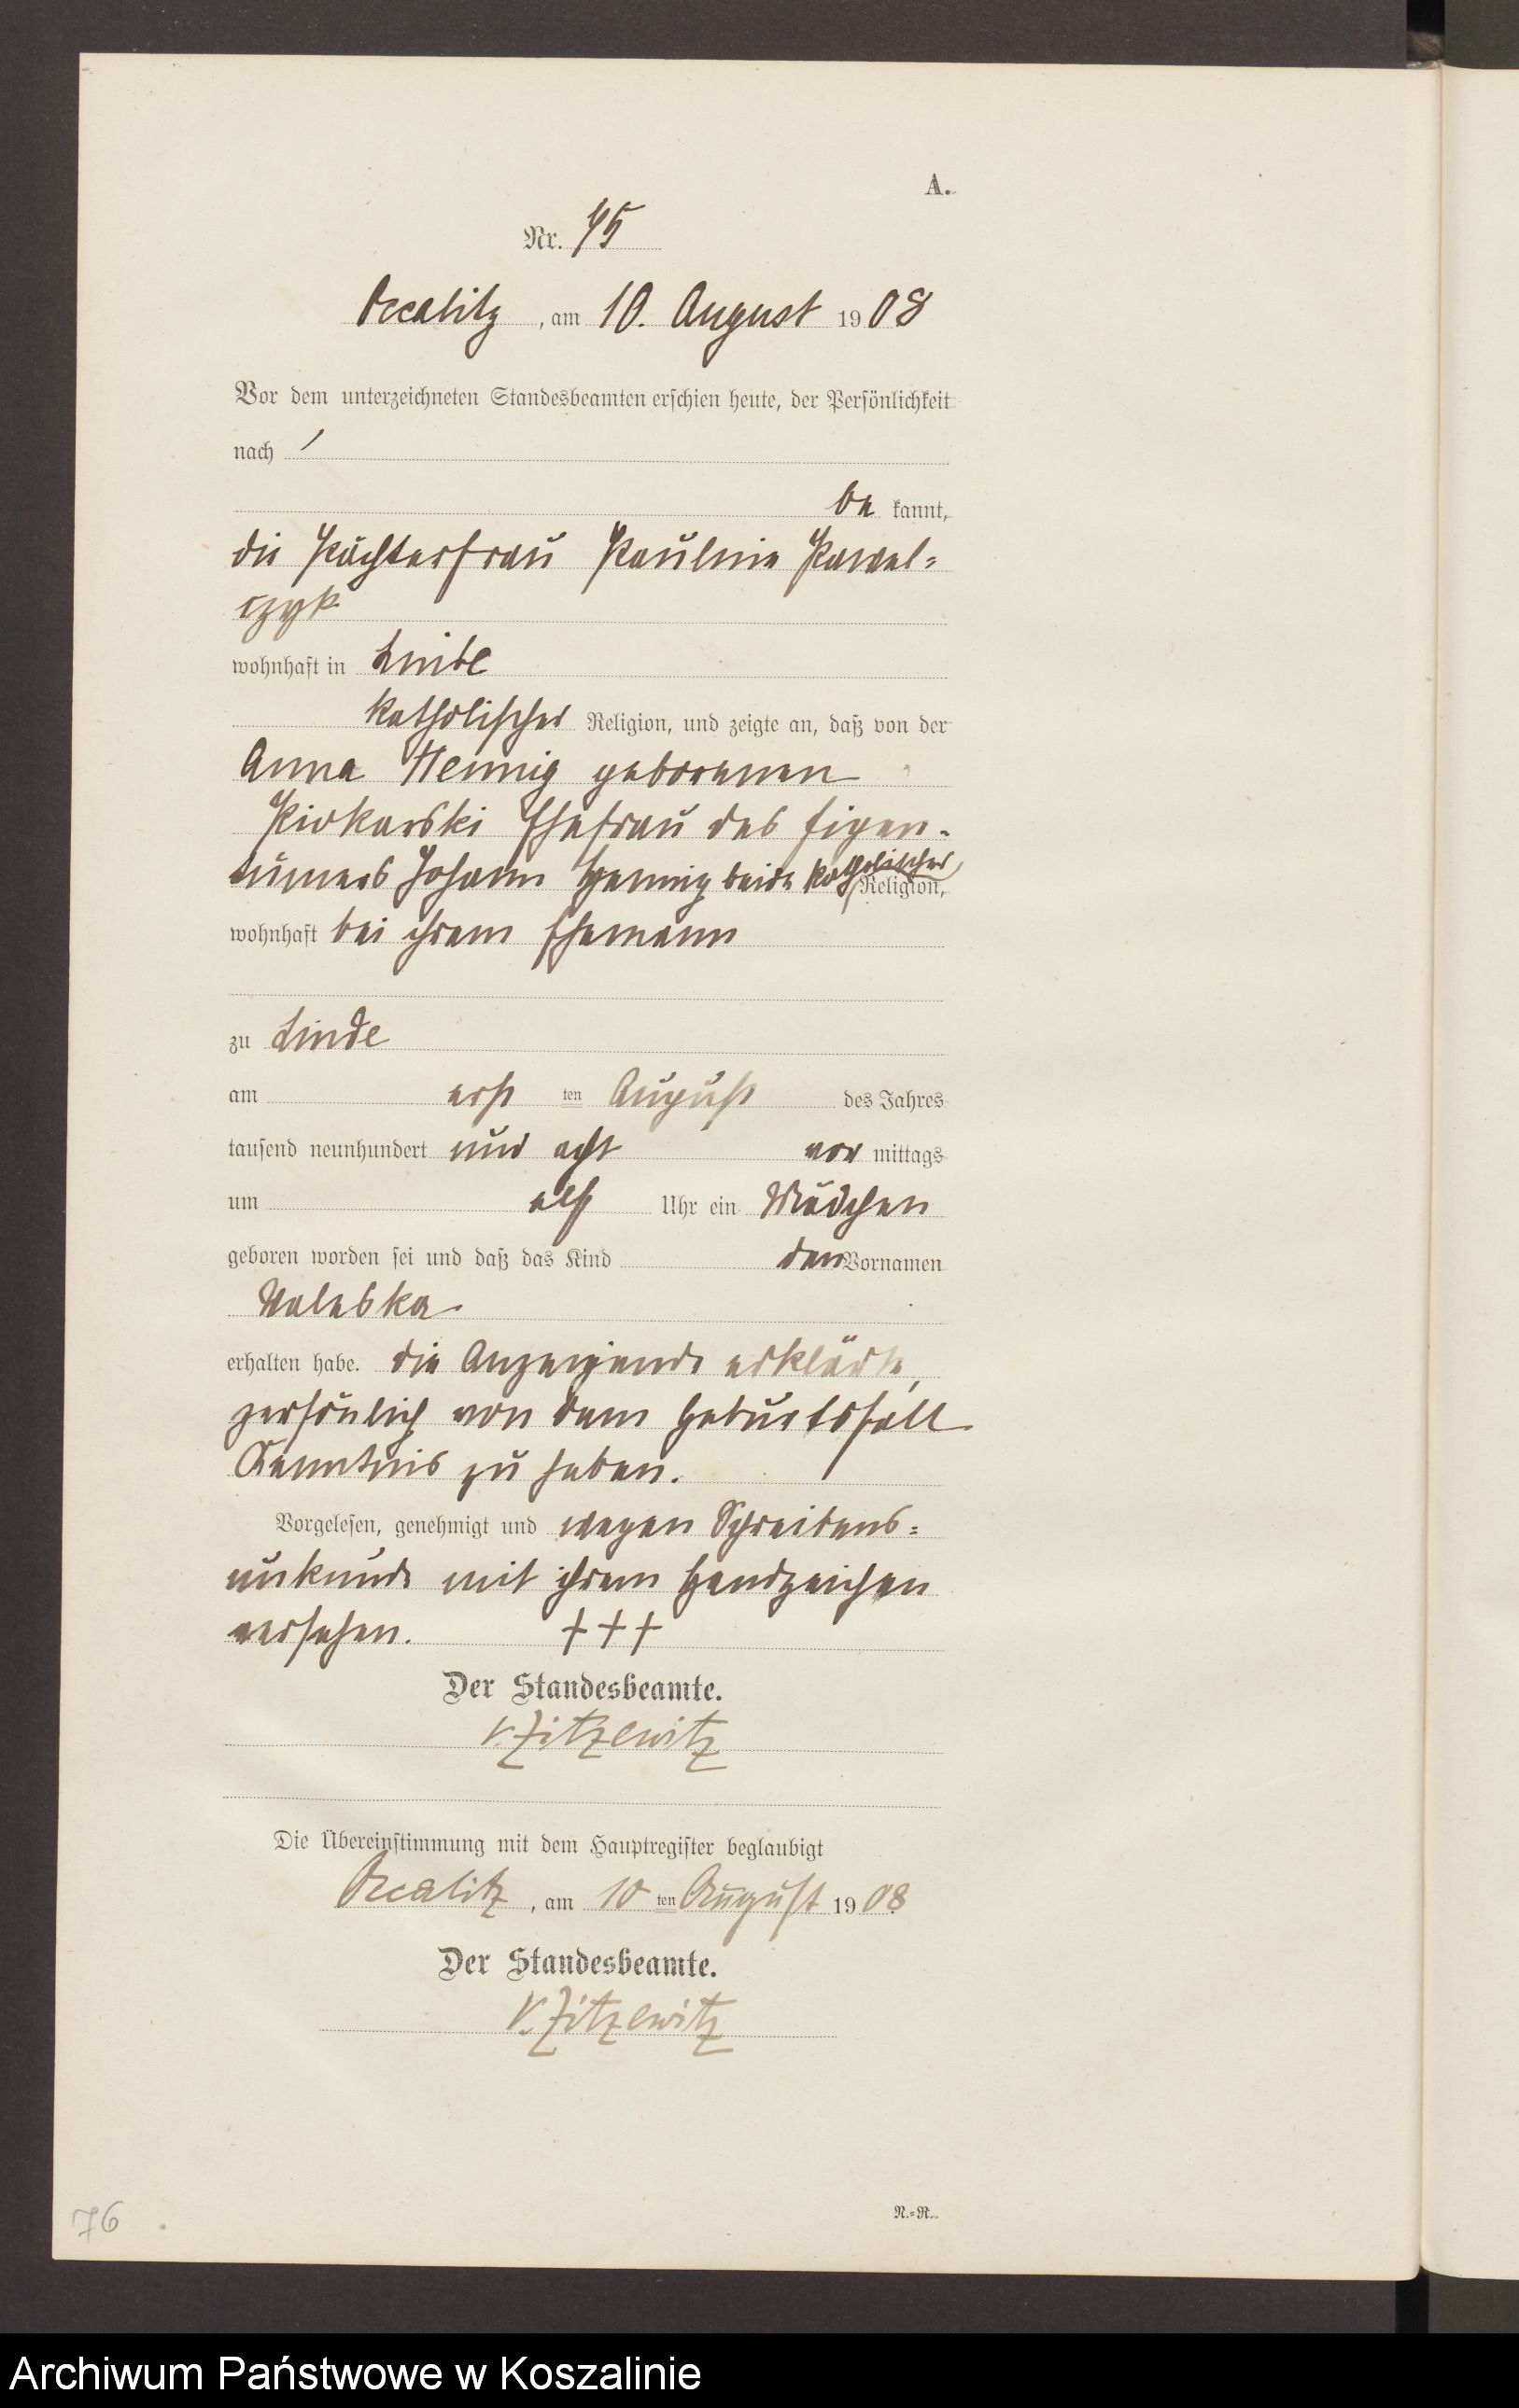 A.
Nr. 75
Occalitz, am 10. August 1908
Vor dem unterzeichneten Standesbeamten erschien heute, der Persönlichkeit
nach
be kannt,
die Pächterfrau Pauline Pawel=
czyk
wohnhaft in Linde
katholischer Religion, und zeigte an, daß von der
Anna Hennig geborenen
Ehefrau des Eigen-
tümers Johann Hennig beide katholischer Religion,
wohnhaft bei ihrem Ehemann
zu Linde
am erst ten August des Jahres
tausend neunhundert und acht vor mittags
um elf Uhr ein Mädchen
geboren worden sei und daß das Kind den Vornamen
Waleska
erhalten habe. die Anzeigende erklärte,
persönlich von dem Geburtsfall
Kenntnis zu haben.
Vorgelesen, genehmigt und wegen Schreibens=
unkunde mit ihrem Handzeichen
versehen. +++
Der Standesbeamte.
v. Zitzewitz
Die Übereinstimmung mit dem Hauptregister beglaubigt
Occalitz, am 10 ten August 1908.
Der Standesbeamte.
v. Zitzewitz
N.=R.
76
Archiwum Państwowe w Koszalinie